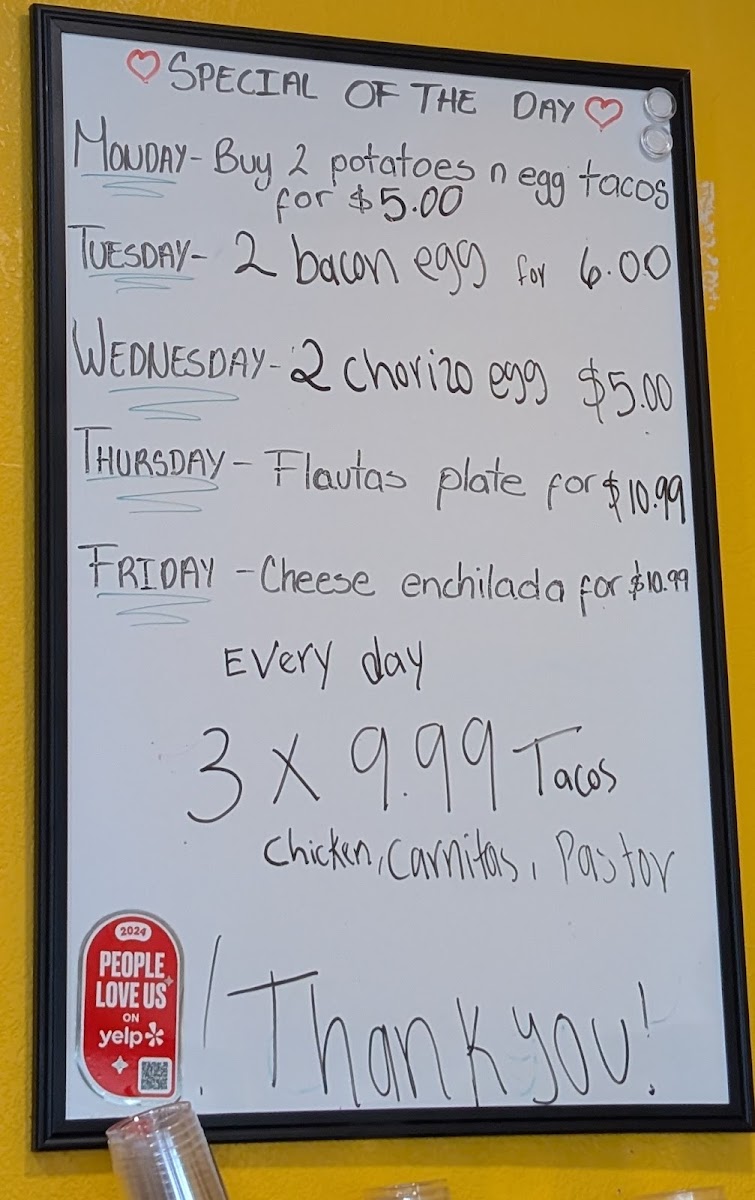 SPECIAL OF THE DAY
MONDAY - Buy 2 potatoes n egg tacos
for $5.00
TUESDAY - 2 bacon egg for 6.00
WEDNESDAY - 2 chorizo egg $5.00
THURSDAY - Flautas plate for $10.99
FRIDAY - Cheese enchilada for $10.99
Every day
3 X 9.99 Tacos
Chicken, Carnitas, Pastor
! Thank you!
2024
PEOPLE
LOVE US
ON
yelp